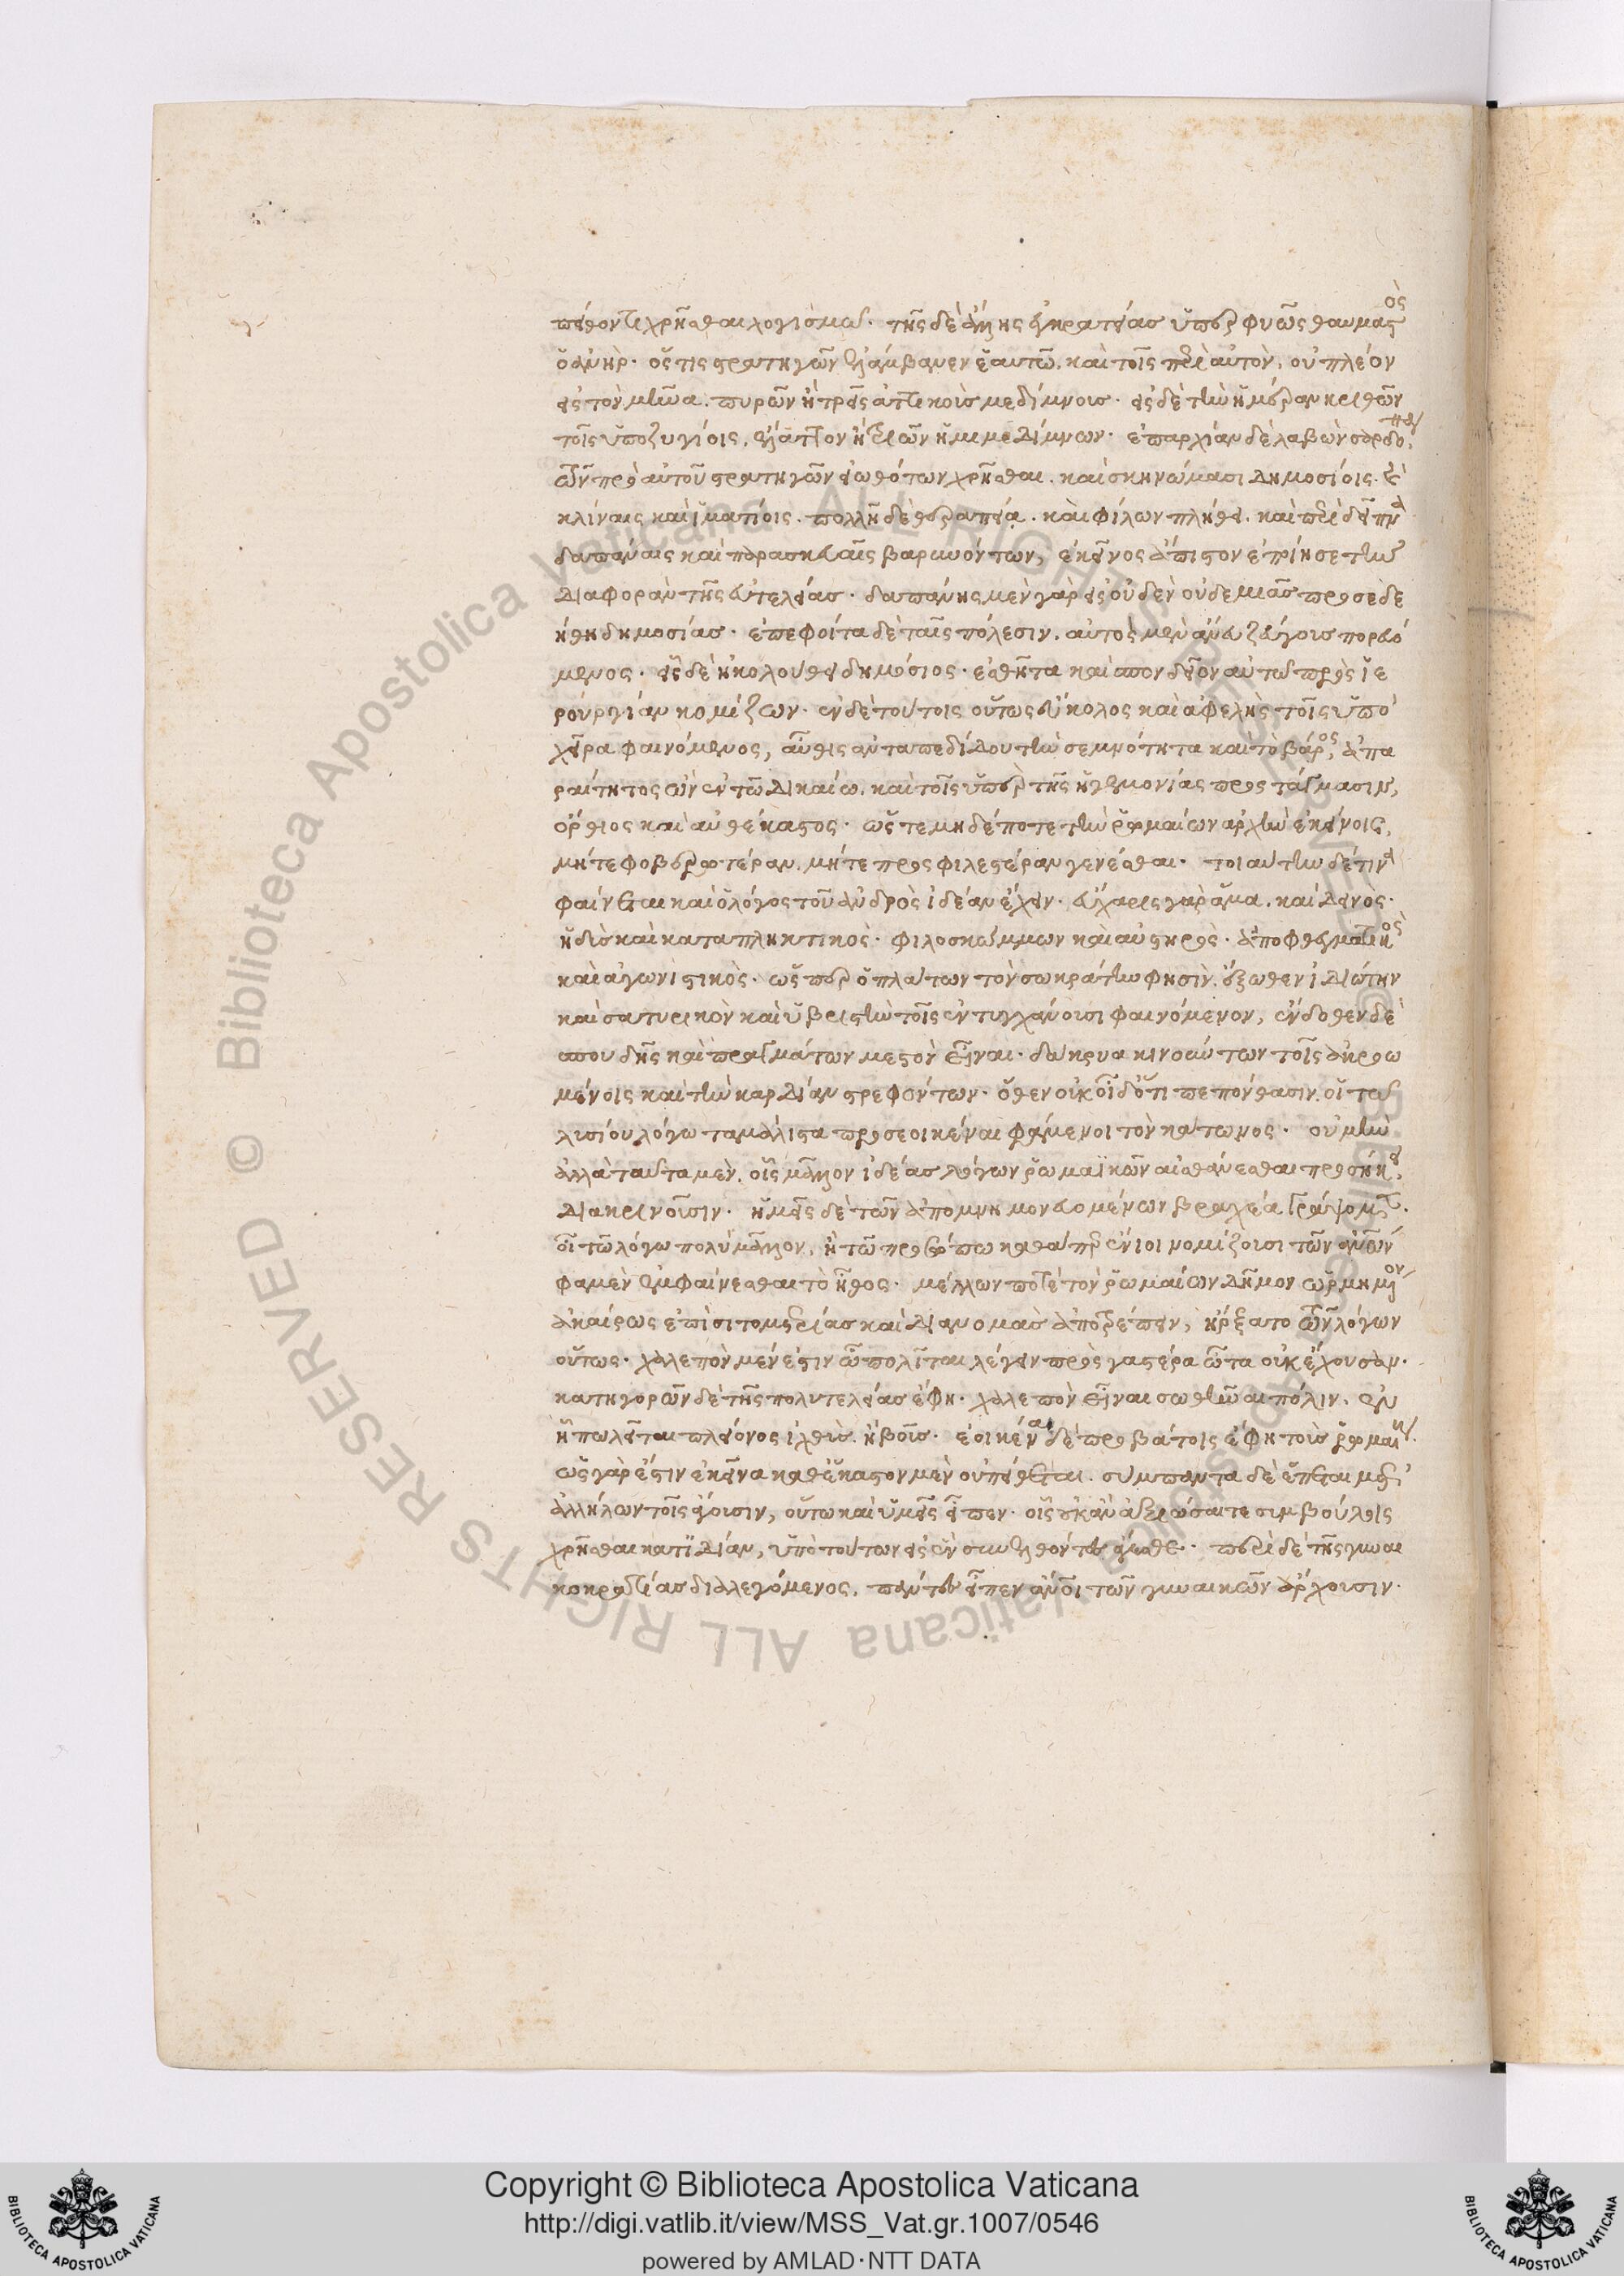 πείθοντι χρῆσθαι λογισμῶ. τῆς δὲ ἄλλης ἐγκρατείας ὑπερφυῶς θαυμαστὸς
ὁ ἀνὴρ. ὅς τις στρατηγῶν ἐλάμβανεν ἑαυτῶ, καὶ τοῖς περὶ αὐτὸν, οὐ πλέον
εἰς τὸν μῆνα. πυρῶν ἢ τρεῖς ἀττικοὺς μεδίμνους. εἰς δὲ τὴν ἡμέραν κριθῶν
τοῖς ὑποζυγίοις, ἔλαττον ἢ τριῶν ἡμιμεδίμνων. ἐπαρχίαν δὲ λαβὼν σαρδό,
τῶν πρὸ αὐτοῦ στρατηγῶν εἰωθότων χρῆσθαι. καὶ σκηνώμασι δημοσίοις. καὶ
κλίναις καὶ ἱματίοις. πολλῆ δὲ θεραπεία. καὶ φίλων πλήθει. καὶ περὶ δεῖπνα
δαπάναις καὶ παρασκευαῖς βαρυνόντων, ἐκεῖνος ἄπιστον ἐποίησε τὴν
διαφορὰν τῆς εὐτελείας. δαπάνης μὲν γὰρ εἰς οὐδὲν οὐδεμιᾶς προσεδε
ήθη δημοσίας. ἐπεφοίτα δὲ ταῖς πόλεσιν. αὐτὸς μὲν ἄνευ ζεύγους πορευό
μενος. εἷς δὲ ἠκολούθει δημόσιος. ἐσθῆτα καὶ σπονδεῖον αὐτῶ πρὸς ἱε
ρουργίαν κομίζων. ἐν δὲ τούτοις οὕτως εὔκολος καὶ ἀφελὴς τοῖς ὑπὸ
χεῖρα φαινόμενος, αὖθις ἀνταπεδίδου τὴν σεμνότητα καὶ τὸ βάρος, ἀπα
ραίτητος ὢν ἐν τῶ δικαίω. καὶ τοῖς ὑπὲρ τῆς ἡγεμονίας προστάγμασιν,
ὄρθιος καὶ αὐθέκαστος. ὥστε μηδέποτε τὴν ῥωμαίων ἀρχὴν ἐκείνοις,
μήτε φοβερωτέραν. μήτε προσφιλεστέραν γενέσθαι. τοιαύτην δέ τινα
φαίνεται καὶ ὁ λόγος τοῦ ἀνδρὸς ἰδέαν ἔχειν. εὔχαρις γὰρ ἅμα. καὶ δεινὸς.
ἡδὺς καὶ καταπληκτικὸς. φιλοσκώμμων καὶ αὐστηρὸς. ἀποφθεγματικὸς
καὶ ἀγωνιστικὸς. ὥσπερ ὁ πλάτων τὸν σωκράτην φησὶν, ἔξωθεν ἰδιώτην
καὶ σατυρικὸν καὶ ὑβριστὴν τοῖς ἐντυγχάνουσι φαινόμενον, ἔνδοθεν δὲ
σπουδῆς καὶ πραγμάτων μεστὸν εἶναι. δάκρυα κινούντων τοῖς ἀκροω
μένοις καὶ τὴν καρδίαν στρεφόντων. ὅθεν οὐκ οἶδ᾽ ὅτι πεπόνθασιν, οἱ τῶ
λυσίου λόγω τὰ μάλιστα προσεοικέναι φάμενοι τὸν κάτωνος. οὐ μὴν
ἀλλὰ ταῦτα μὲν, οἷς μᾶλλον ἰδέας λόγων ῥωμαϊκῶν αἰσθάνεσθαι προσήκει,
διακρινοῦσιν. ἡμεῖς δὲ τῶν ἀπομνημονευομένων βραχέα γράψομεν.
οἳ τῶ λόγω πολὺ μᾶλλον, ἢ τῶ προσώπω καθάπερ ἔνιοι νομίζουσι τῶν ἀνθρώπων
φαμὲν ἐμφαίνεσθαι τὸ ἦθος. μέλλων ποτὲ τὸν ῥωμαίων δῆμον ὡρμημένον
ἀκαίρως ἐπὶ σιτομετρίας καὶ διανομὰς ἀποτρέπειν, ἤρξατο τῶν λόγων
οὕτως. χαλεπὸν μέν ἐστιν ὦ πολῖται λέγειν πρὸς γαστέρα ὦτα οὐκ ἔχουσαν.
κατηγορῶν δὲ τῆς πολυτελείας ἔφη. χαλεπὸν εἶναι σωθῆναι πόλιν, ἐν
ἧ πωλεῖται πλείονος ἰχθὺς. ἢ βοῦς. ἐοικέναι δὲ προβάτοις ἔφη τοὺς ῥωμαίους.
ὡς γὰρ ἐστιν ἐκεῖνα καθέκαστον μὲν οὐ πείθεται. σύμπαντα δὲ ἕπεται μετ᾽
ἀλλήλων τοῖς ἄγουσιν, οὕτω καὶ ὑμεῖς εἶπεν. οἷς οὐκ ἂν ἀξιώσαιτε συμβούλοις
χρῆσθαι κατ᾽ ἰδίαν, ὑπὸ τούτων εἰς ἓν συνελθόντες ἄγεσθε. περὶ δὲ τῆς γυναι
κοκρατίας διαλεγόμενος, πάντες εἶπεν ἄνθρωποι τῶν γυναικῶν ἄρχουσιν.
© Biblioteca Apostolica Vaticana ALL RIGHTS RESERVED © Biblioteca Apostolica Vaticana ALL RIGHTS RESERVED
Copyright © Biblioteca Apostolica Vaticana
http://digi.vatlib.it/view/MSS_Vat.gr.1007/0546
powered by AMLAD·NTT DATA
BIBLIOTECA APOSTOLICA VATICANA
BIBLIOTECA APOSTOLICA VATICANA